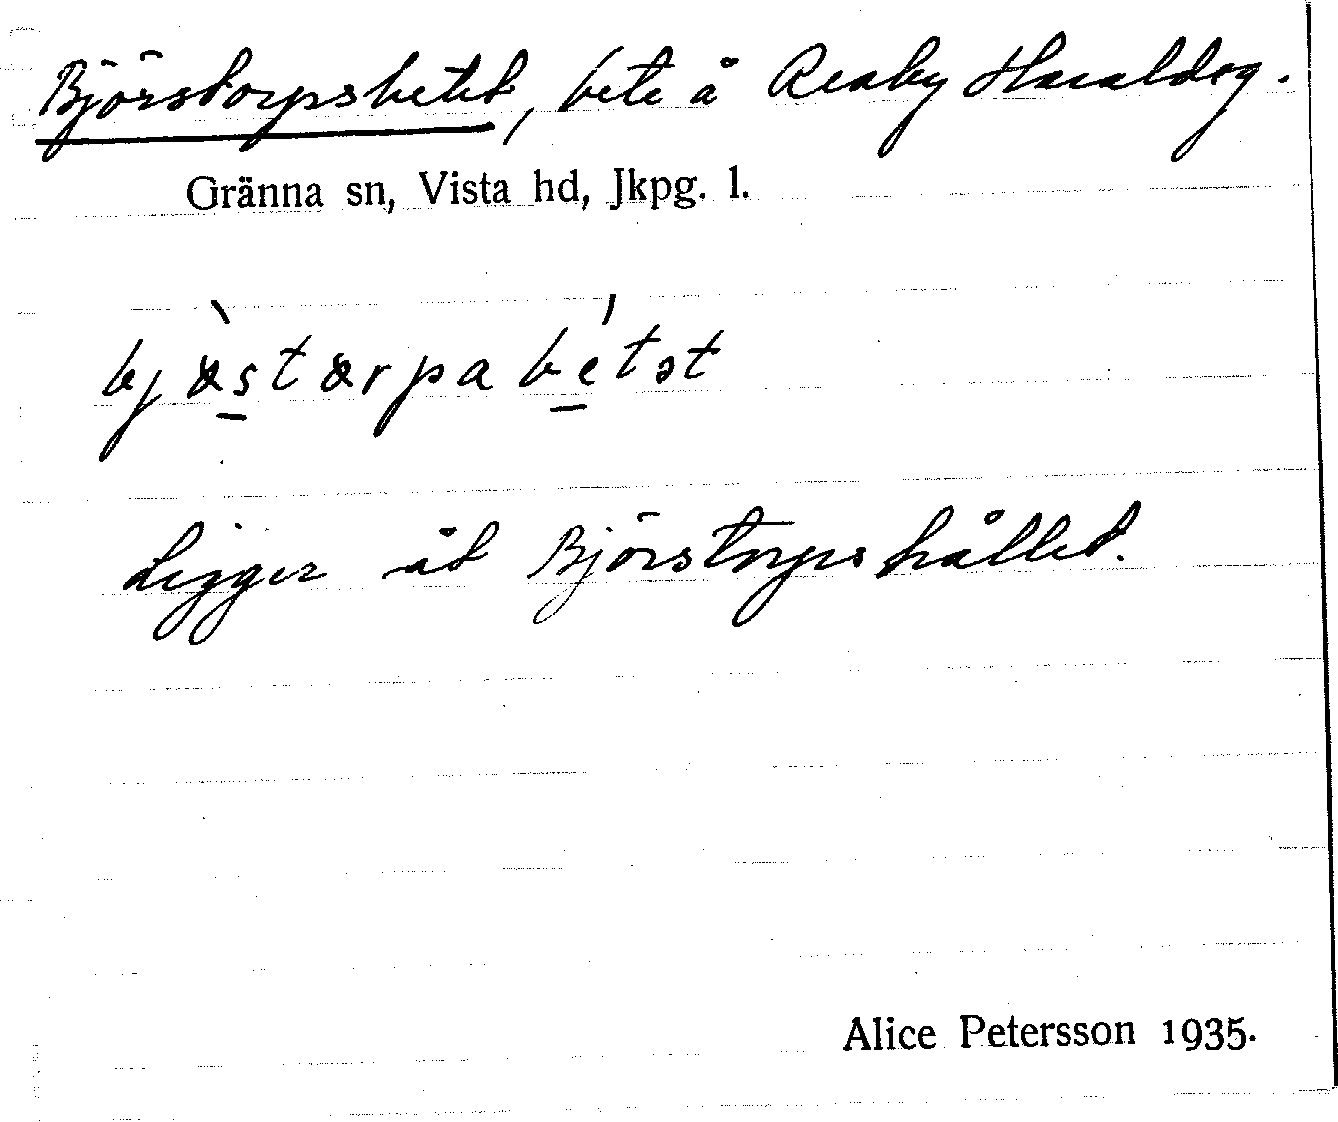 Björstorpsbetet, bete å Reaby Haraldsg.
Gränna sn, Vista hd, Jkpg. l.
bjæ̀stærpabétət
Ligger åt Björstorpshållet.
Alice Petersson 1935.